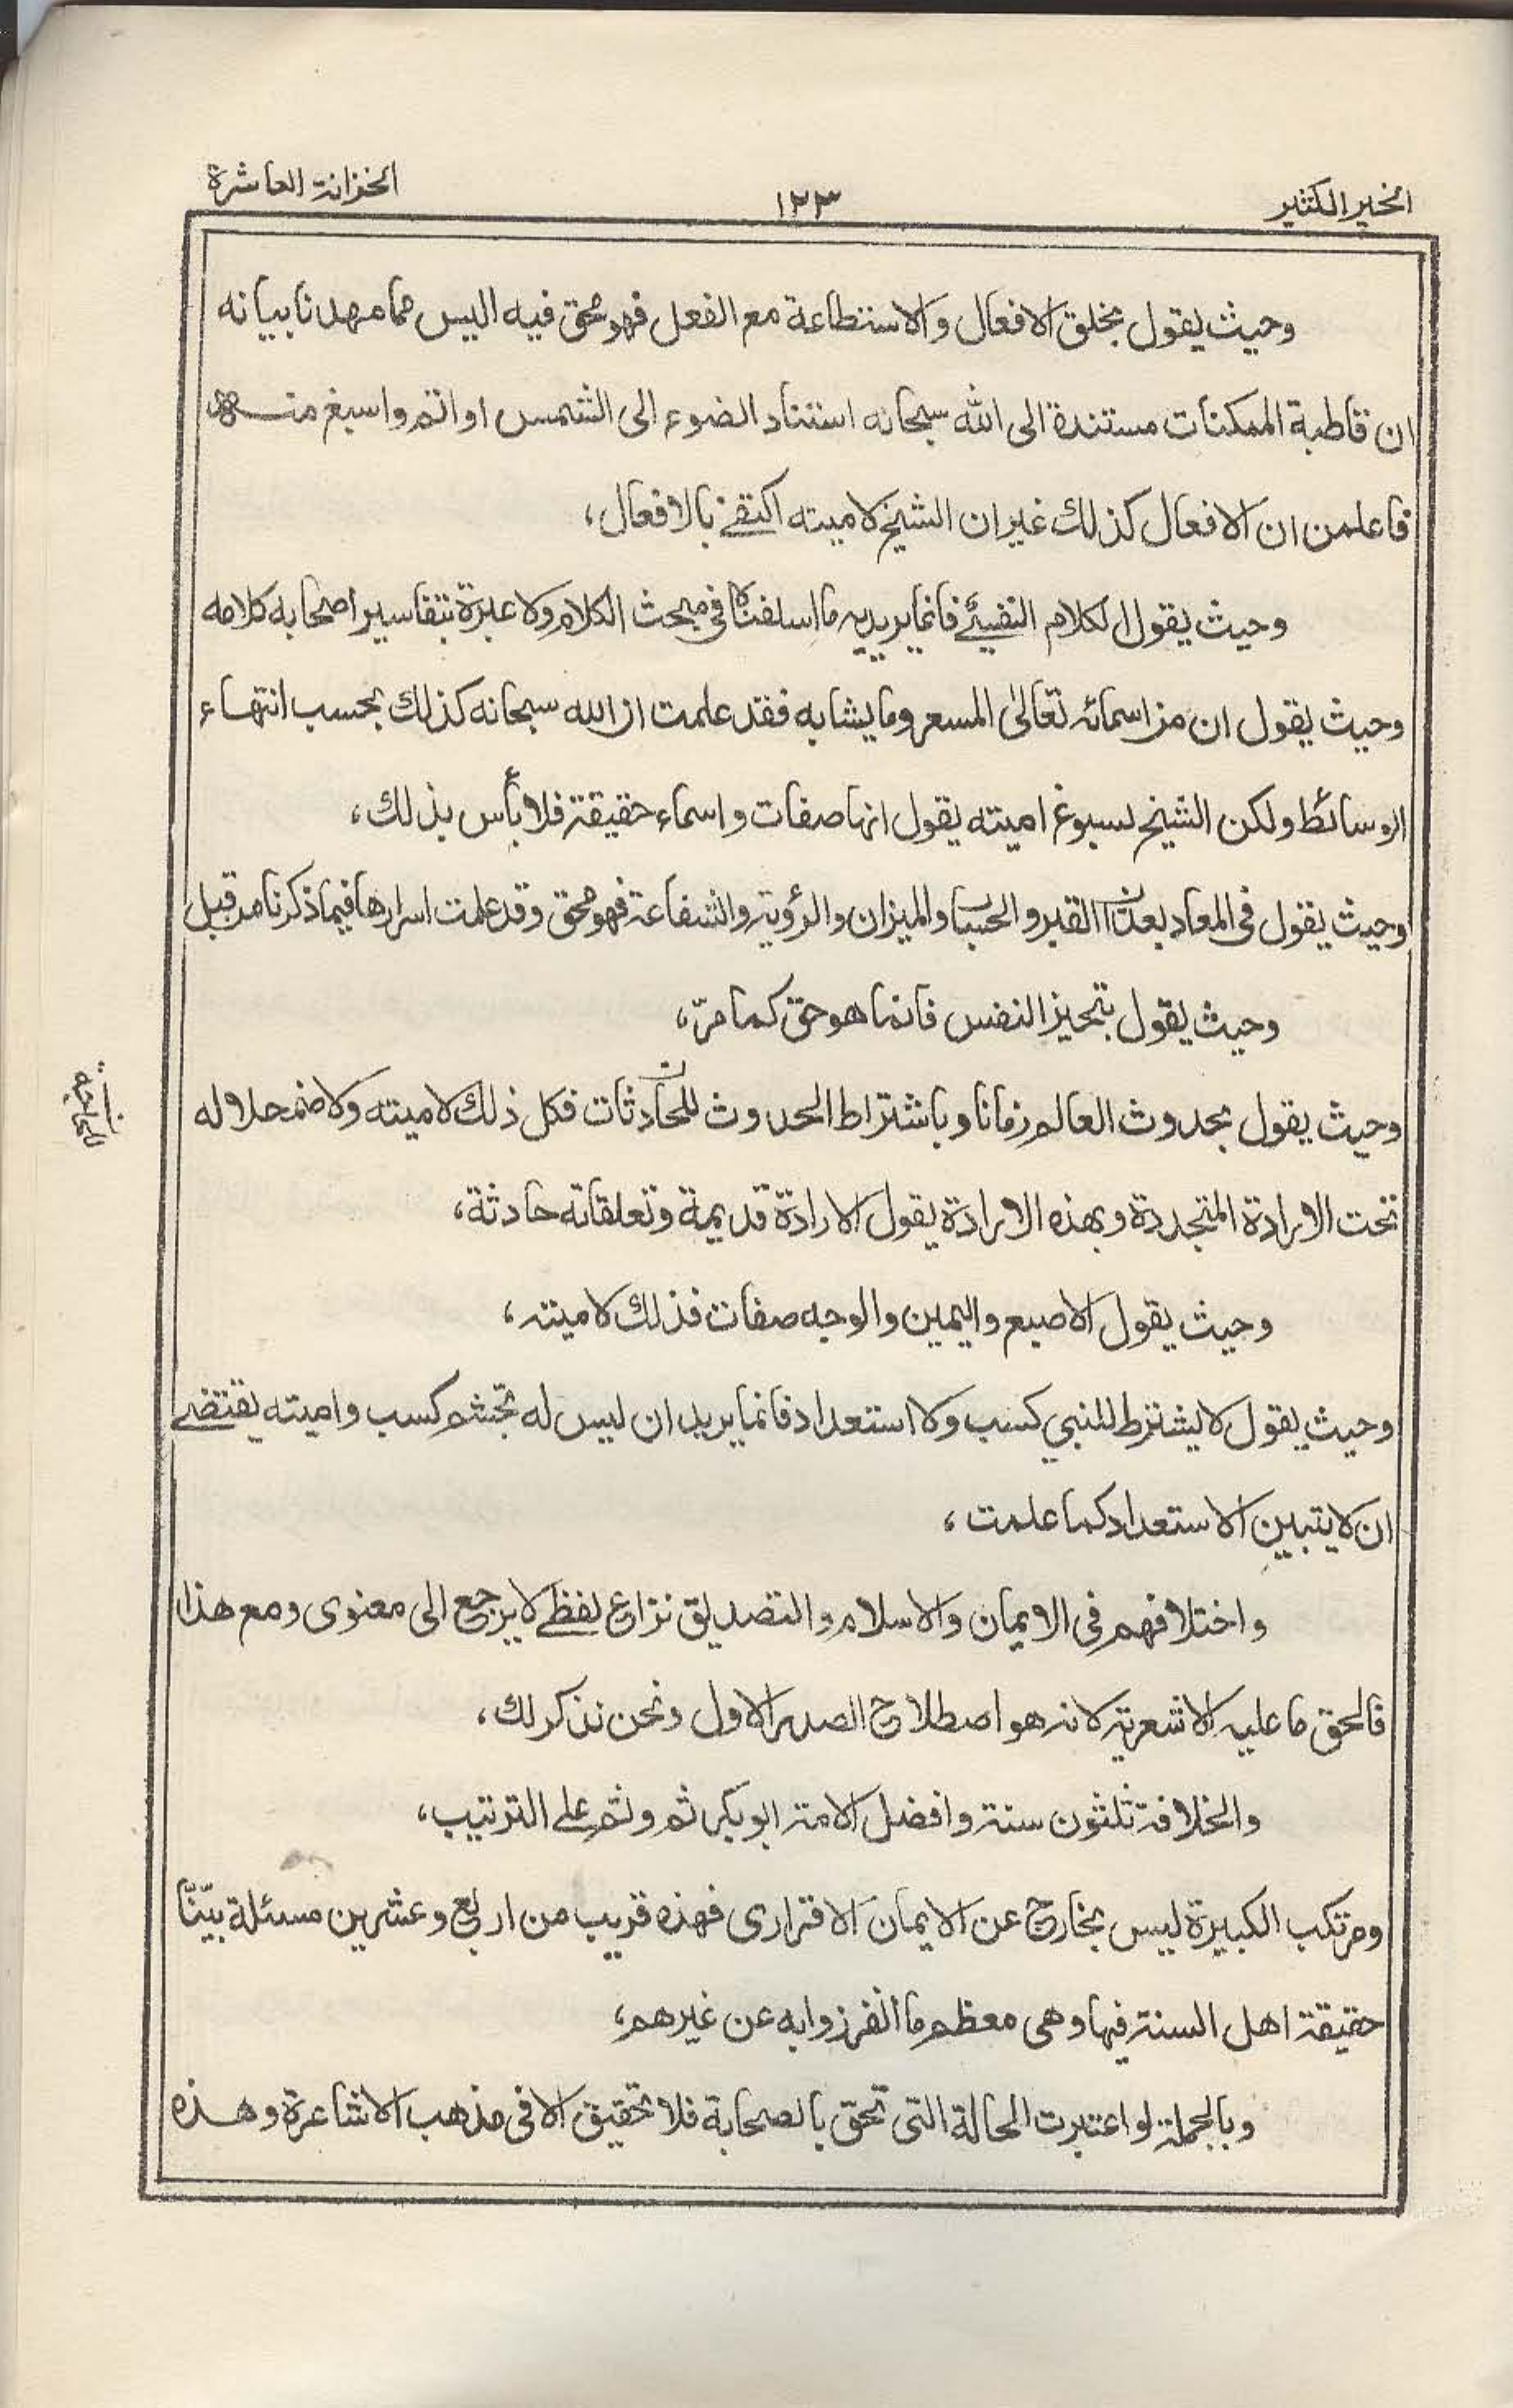 الخير الكثير
١٢٣
الخزانة العاشرة
وحيث يقول بخلق الافعال والاستطاعة مع الفعل فهو محق فيه اليس مما مهدنا بيانه
ان قاطبة الممكنات مستندة الى الله سبحانه استناد الضوء الى الشمس او اتم واسبغ منه
فاعلمن ان الافعال كذلك غير ان الشيخ لاميته اكتفى بالافعال،
وحيث يقول الكلام النفسي فانما يريد به ما اسلفناه فى مبحث الكلام ولا عبرة بتفاسير اصحابه كلامه
وحيث يقول ان من اسمائه تعالىٰ المسعر وما يشابه فقد علمت ان الله سبحانه كذلك بحسب انتهاء
الوسائط ولكن الشيخ لسبوغ اميته يقول انها صفات واسماء حقيقة فلا بأس بذلك،
وحيث يقول فى المعاد بعذاب القبر والحساب والميزان والرؤية والشفاعة فهو محق وقد علمت اسرارها فيما ذكرنا من قبل
وحيث يقول بتحيز النفس فانما هو حق كما مرّ،
وحيث يقول بحدوث العالم زمانا وباشتراط الحدوث للحادثات فكل ذلك لاميته ولاضمحلاله
تحت الارادة المتجددة وبهذه الارادة يقول الارادة قديمة وتعلقاته حادثة،
وحيث يقول الاصبع واليمين والوجه صفات فذلك لاميته،
وحيث يقول لا يشترط للنبي كسب ولا استعداد فانما يريد ان ليس له تجشم كسب واميته يقتضى
ان لا يتبين الاستعداد كما علمت،
واختلافهم فى الايمان والاسلام والتصديق نزاع لفظى لا يرجع الى معنوى ومع هذا
فالحق ما عليه الاشعرية لانه هو اصطلاح الصدر الاول ونحن نذكر لك،
والخلافة ثلثون سنة وافضل الامة ابو بكر ثم وثم على الترتيب،
ومرتكب الكبيرة ليس بخارج عن الايمان الاقرارى فهذه قريب من اربع وعشرين مسئلة بيّنّا
حقيقة اهل السنة فيها وهى معظم ما انفرزوا به عن غيرهم،
وبالجملة لو اعتبرت الحالة التى تحق بالصحابة فلا تحقيق الا فى مذهب الاشاعرة وهذه